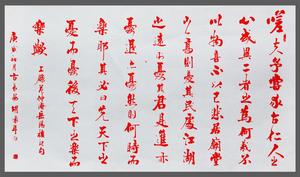 嗟夫予嘗求古仁人之
心或異二者之為何哉不
以物喜不以己悲居廟堂
之高則憂其民處江湖
之遠則憂其君是進亦
憂退亦憂然則何時而
樂耶其必曰先天下之
憂而憂後天下之樂而
樂歟
范仲淹岳陽樓記句